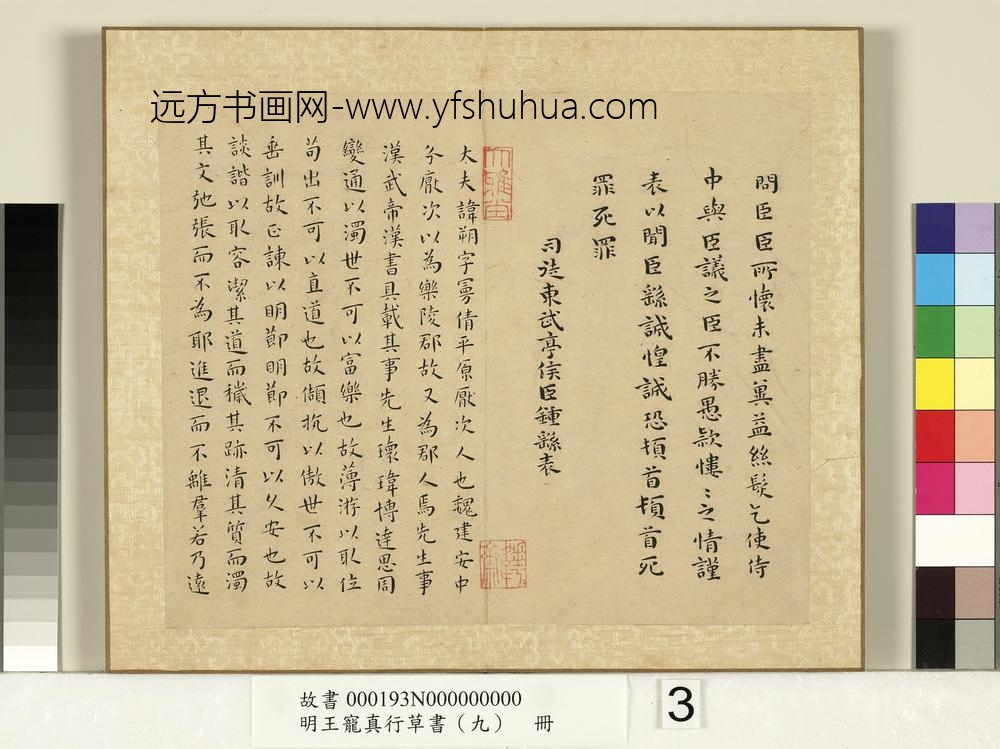 远方书画网-www.yfshuhua.com
問臣臣所懷未盡冀益絲髮乞使侍
中與臣議之臣不勝愚款慺〻之情謹
表以聞臣繇誠惶誠恐頓首頓首死
罪死罪
司徒東武亭侯臣鍾繇表
大夫諱朔字曼倩平原厭次人也魏建安中
分厭次以為樂陵郡故又為郡人焉先生事
漢武帝漢書具載其事先生瓌瑋博達思周
變通以濁世不可以富樂也故薄游以取位
苟出不可以直道也故頡抗以傲世傲世不可以
垂訓故正諫以明節明節不可以久安也故
談諧以取容潔其道而穢其跡清其質而濁
其文弛張而不為耶進退而不離羣若乃遠
故書 000193N000000000
明王寵真行草書（九） 冊
3